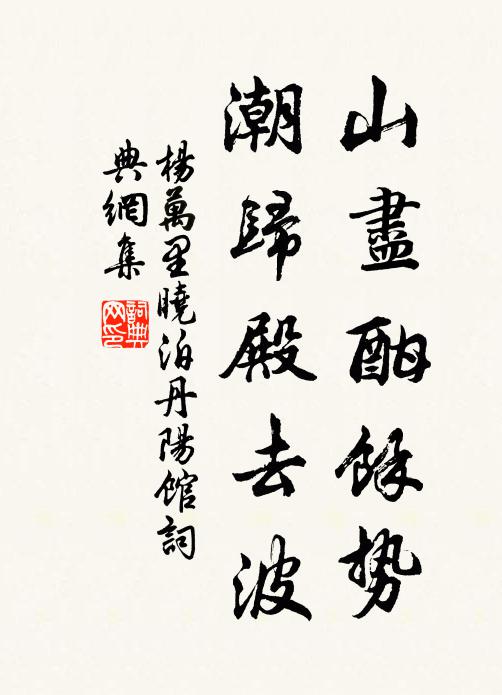 山盡酣餘势
潮歸殿去波
楊萬里曉泊丹陽館詞
典網集
詞典
网印